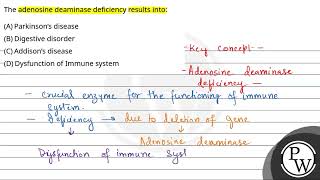 The adenosine deaminase deficiency results into:
(A) Parkinson's disease
(B) Digestive disorder
(C) Addison's disease
(D) Dysfunction of Immune system
- Key concept -
- Adenosine deaminase
deficiency -
- crucial enzyme for the functioning of immune
system.
- Deficiency → due to deletion of gene
Adenosine deaminase
Dysfunction of immune syst
PW